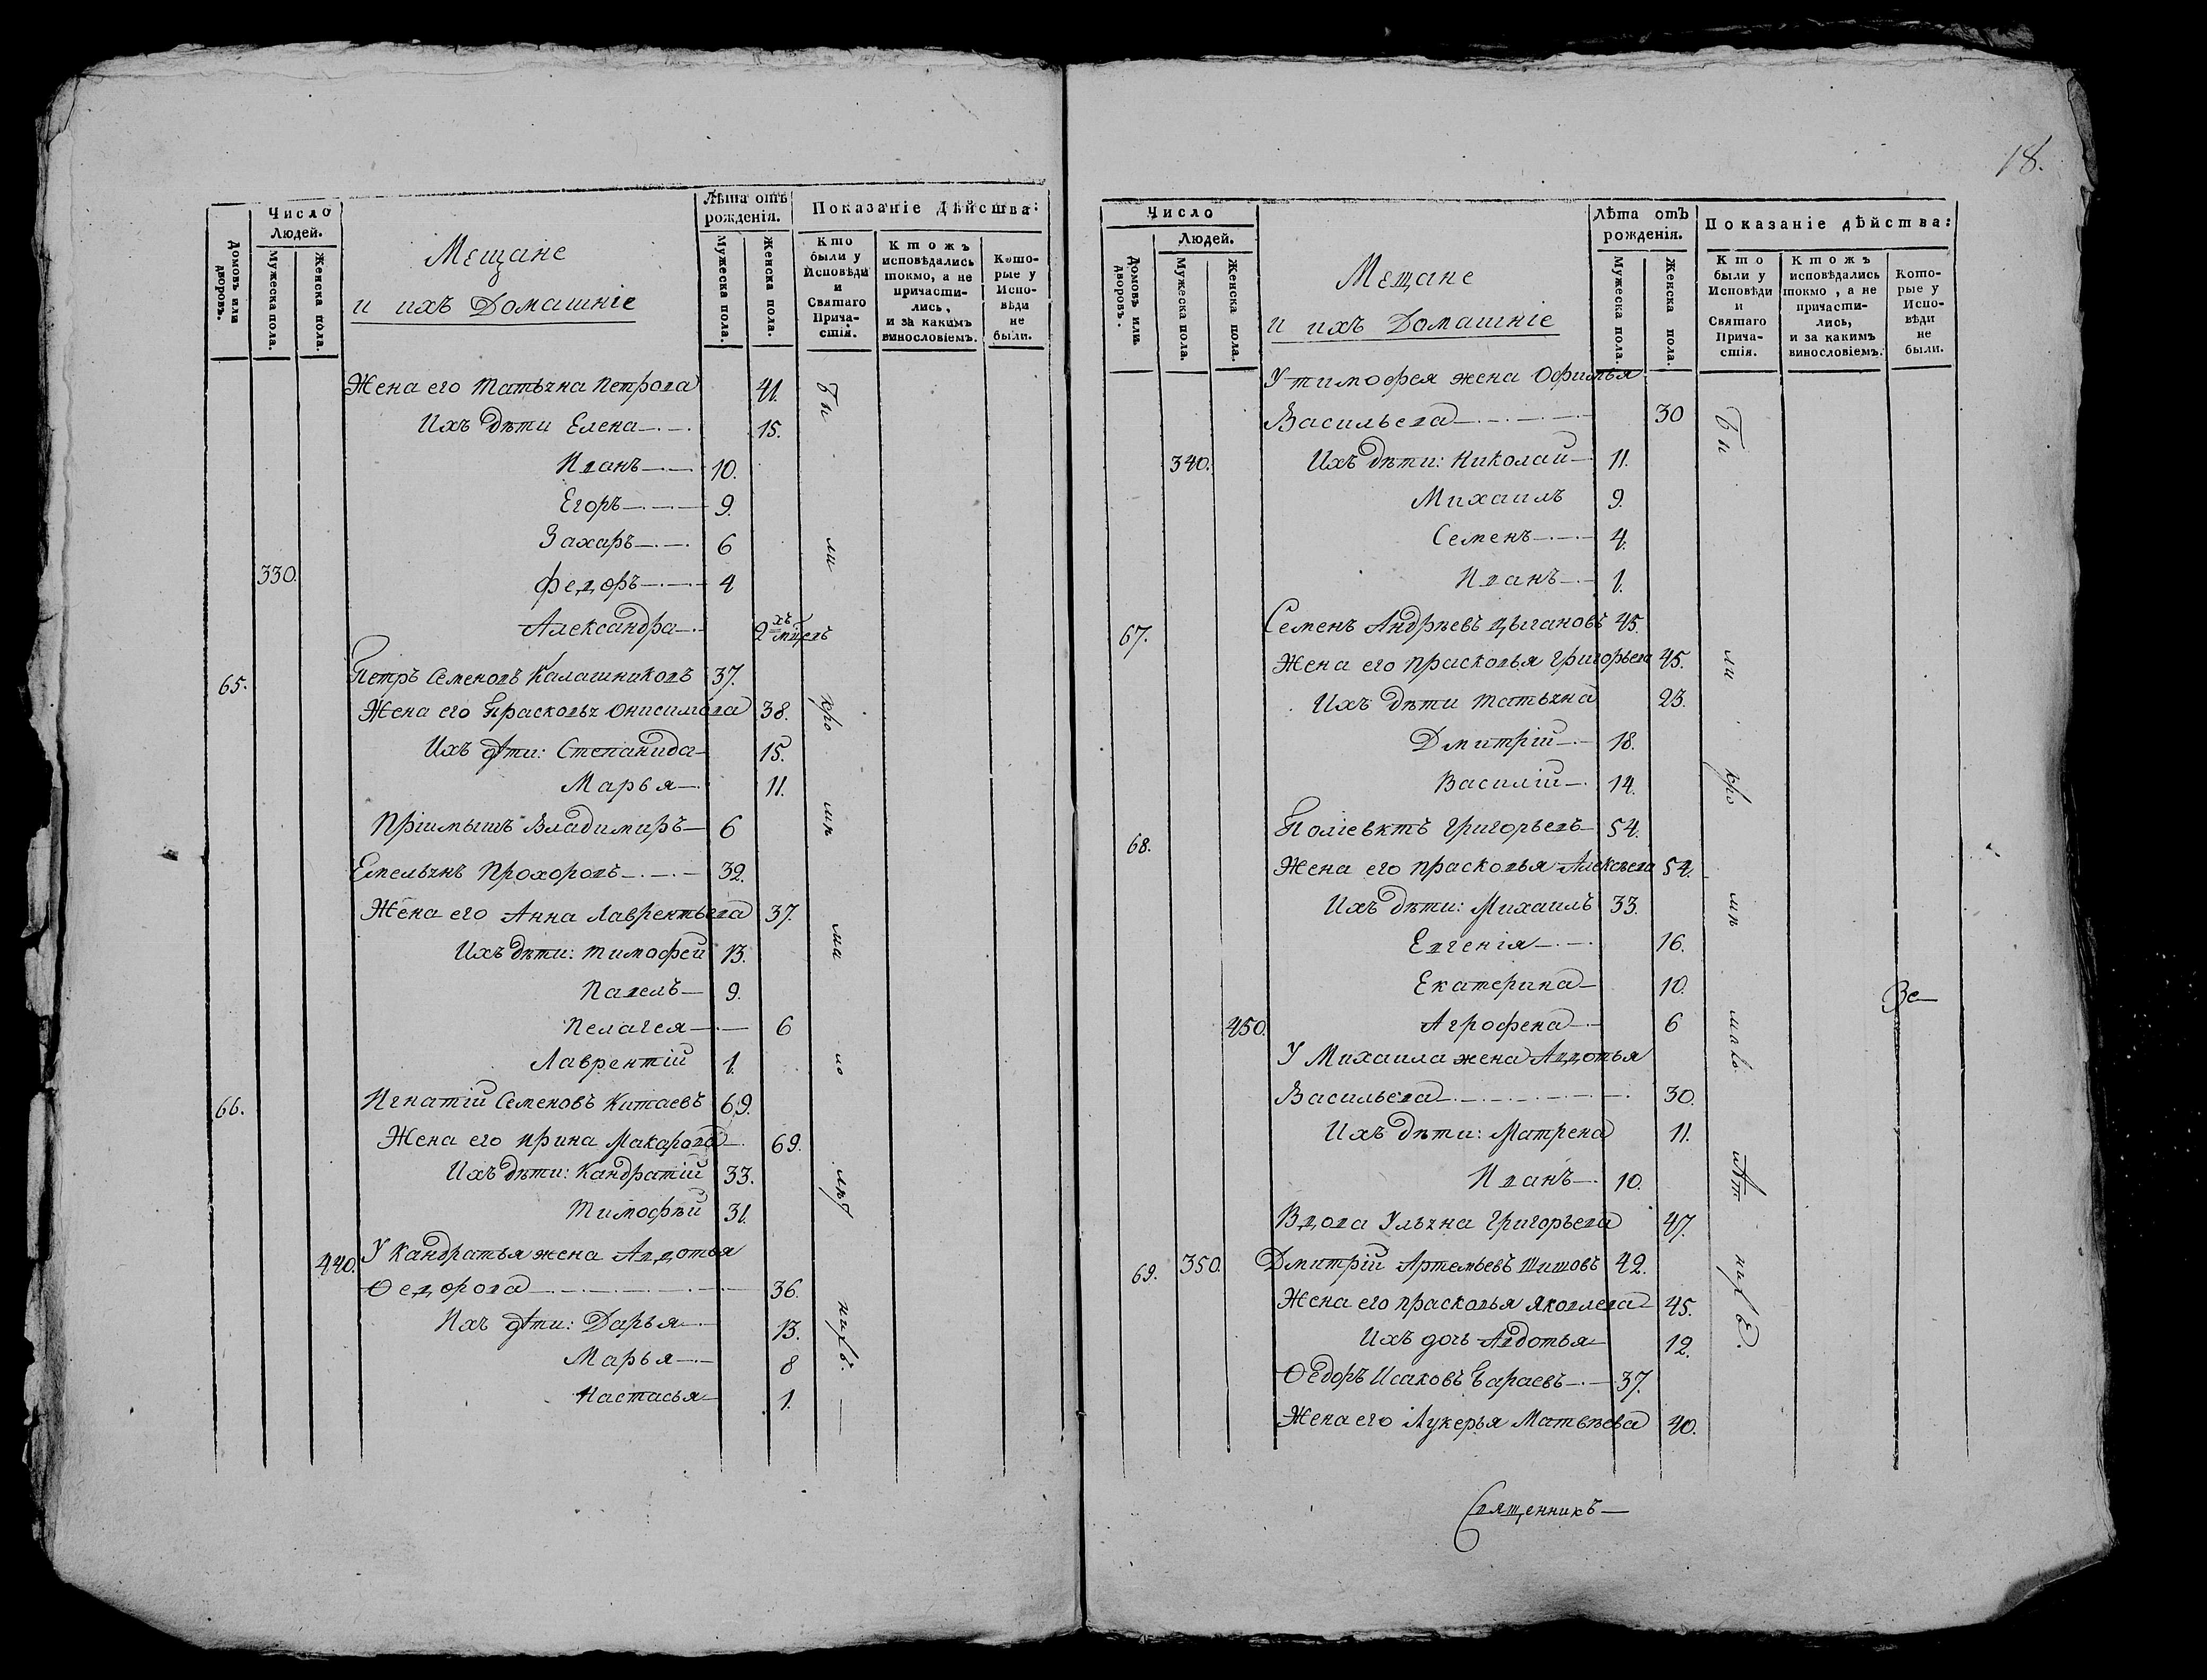 Число
Людей.
Домовъ или дворовъ.
Мужеска пола.
Женска пола.
Мещане
и ихъ Домашніе
Лѣта отъ
рожденія.
Мужеска пола.
Женска пола.
Показаніе Дѣйства:
Кто
были у
Исповѣди
и
Святаго
Прича-
стія.
Ктожъ
исповѣдались
токмо, а не
причасти-
лись,
и за какимъ
винословіемъ.
Кото-
рые у
Испо-
вѣди
не
были.
Жена его Татьяна Петрова 41.
Ихъ дѣти Елена 15.
Иванъ 10.
Егоръ 9.
Захаръ 6
330. Федоръ 4
Александра 2хъ мцевъ
65. Петръ Семеновъ Калашниковъ 37.
Жена его Прасковья Онисимова 38.
Ихъ дѣти: Степанида 15.
Марья 11.
Пріимышъ Владимиръ 6
Емельянъ Прохоровъ 32.
Жена его Анна Лаврентьева 37.
Ихъ дѣти: Тимофей 13.
Павелъ 9.
Пелагея 6
Лаврентій 1.
66. Игнатій Семеновъ Китаевъ 69.
Жена его Ирина Макарова 69.
Ихъ дѣти: Кандратій 33.
Тимофѣй 31.
440. У Кандратья жена Авдотья
Ѳедорова 36.
Ихъ дѣти: Дарья 13.
Марья 8
Настасья 1.
Бы
ли
кро
мѣ
ма
ло
лѣт
нихъ.
18.
Число
Людей.
Домовъ или дворовъ.
Мужеска пола.
Женска пола.
Мещане
и ихъ Домашніе
Лѣта отъ
рожденія.
Мужеска пола.
Женска пола.
Показаніе дѣйства:
Кто
были у
Исповѣди
и
Святаго
Прича-
стія.
Ктожъ
исповѣдались
токмо, а не
причасти-
лись,
и за какимъ
винословіемъ.
Кото-
рые у
Испо-
вѣди
не
были.
У Тимофея жена Офимья
Васильева 30
340. Ихъ дѣти: Николай 11.
Михаилъ 9.
Семенъ 4.
Иванъ 1.
67. Семенъ Андрѣевъ Цыгановъ 45.
Жена его Прасковья Григорьева 45.
Ихъ дѣти Татьяна 23.
Дмитрій 18.
Василій 14.
68. Поліевктъ Григорьевъ 54.
Жена его Прасковья Алексѣева 54.
Ихъ дѣти: Михаилъ 33.
Евгенія 16.
Екатерина 10.
450. Агрофена 6
У Михаила жена Авдотья
Васильева 30.
Ихъ дѣти: Матрена 11.
Иванъ 10.
Вдова Ульяна Григорьева 47.
69. 350. Дмитрій Артемьевъ Шишовъ 42.
Жена его Прасковья Яковлева 45.
Ихъ дочь Авдотья 12.
Ѳедоръ Исаковъ Бараевъ 37.
Жена его Лукерья Матвѣева 40.
Бы
ли
кро
мѣ
мало
лѣт
нихъ.
Священникъ